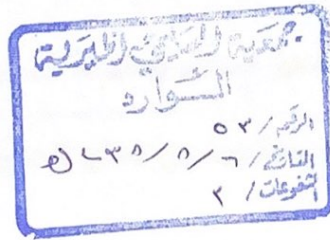 جمعية المتقين الخيرية
الشوارد
الرقم / ٥٣
التاريخ / ٦ / ٨ / ١٤٣٨ هـ
المشفوعات / ٢